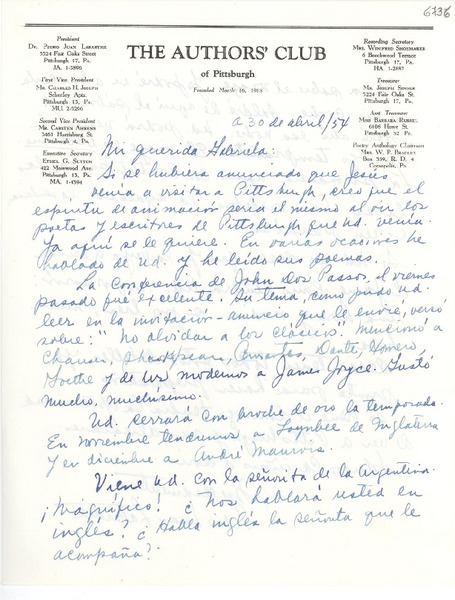 6736
THE AUTHORS' CLUB
of Pittsburgh
Founded March 16, 1918
President
Dr. Pedro Juan Labarthe
5524 Fair Oaks Street
Pittsburgh 17, Pa.
JA. 1-5896
First Vice President
Mr. Charles H. Joseph
Schenley Apts.
Pittsburgh 13, Pa.
MU. 2-5296
Second Vice President
Mr. Carsten Ahrens
Pittsburgh 4, Pa.
Executive Secretary
Ethel G. Sutton
Pittsburgh 13, Pa.
MA. 1-4594
Recording Secretary
Mrs. Winifred Shoemaker
6 Beechwood Terrace
Pittsburgh 17, Pa.
HA. 1-2887
Treasurer
Mr. Joseph Singer
5224 Fair Oaks St.
Pittsburgh 17, Pa.
Asst Treasurer
Miss Barbara
6106 Howe St.
Pittsburgh 32 Pa.
Poetry Anthology Chairman
Mrs. W. P. Bragley
Box 359, R. D. 4
Coraopolis, Pa.
a 30 de abril/54
Mi querida Gabriela:
Si se hubiera anunciado que Jesús
venía a visitar a Pittsburgh, creo que el
espíritu de animación sería el mismo al oir los
poetas y escritores de Pittsburgh que Ud. venía.
Ya aquí se le quiere. En varias ocasiones he
hablado de Ud. y he leído sus poemas.
La Conferencia de John Dos Passos el viernes
pasado fué excelente. Su tema, como pudo Ud.
leer en la invitación-anuncio que le envié, versó
sobre: "No olvidar a los clásicos". Mencionó a
Chaucer, Shakespeare, Cervantes, Dante, Homero,
Goethe y de los modernos a James Joyce. Gustó
mucho, muchísimo.
Ud. cerrará con broche de oro la temporada.
En noviembre tendremos a Toynbee de Inglaterra
y en diciembre a André Maurois.
Viene Ud. con la señorita de la Argentina.
¡Magnífico! ¿Nos hablará usted en
inglés? ¿Habla inglés la señorita que le
acompaña?